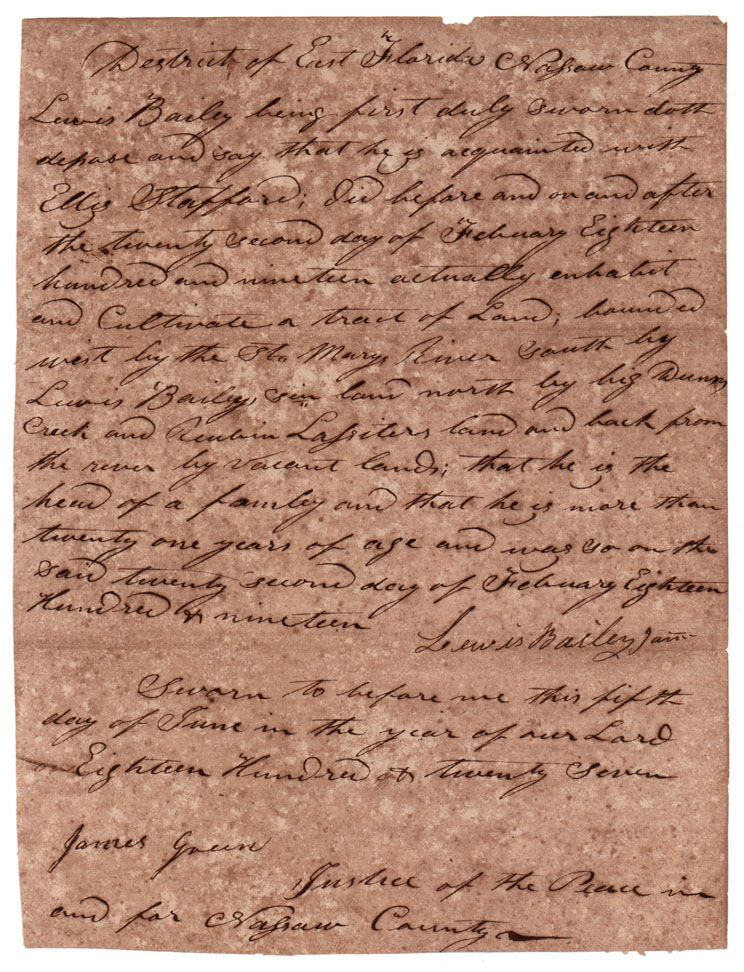 District of East Florida Nassaw County
Lewis Bailey being first duly sworn doth
depose and say that he is acquainted with
Ellis Stafford; did before and on and after
the twenty second day of Febuary Eighteen
hundred and nineteen actually enhabit
and Cultivate a tract of Land; bounded
west by the St. Marys River south by
Lewis Baileys land north by big Dunns
Creek and Reubin Lassiters land and back from
the river by vacant lands; that he is the
head of a family and that he is more than
twenty one years of age and was so on the
said twenty second day of Febuary Eighteen
Hundred & nineteen
Lewis Bailey
Sworn to before me this fifth
day of June in the year of our Lord
Eighteen Hundred & twenty Seven
James Green
Justice of the Peace in
and for Nassaw County